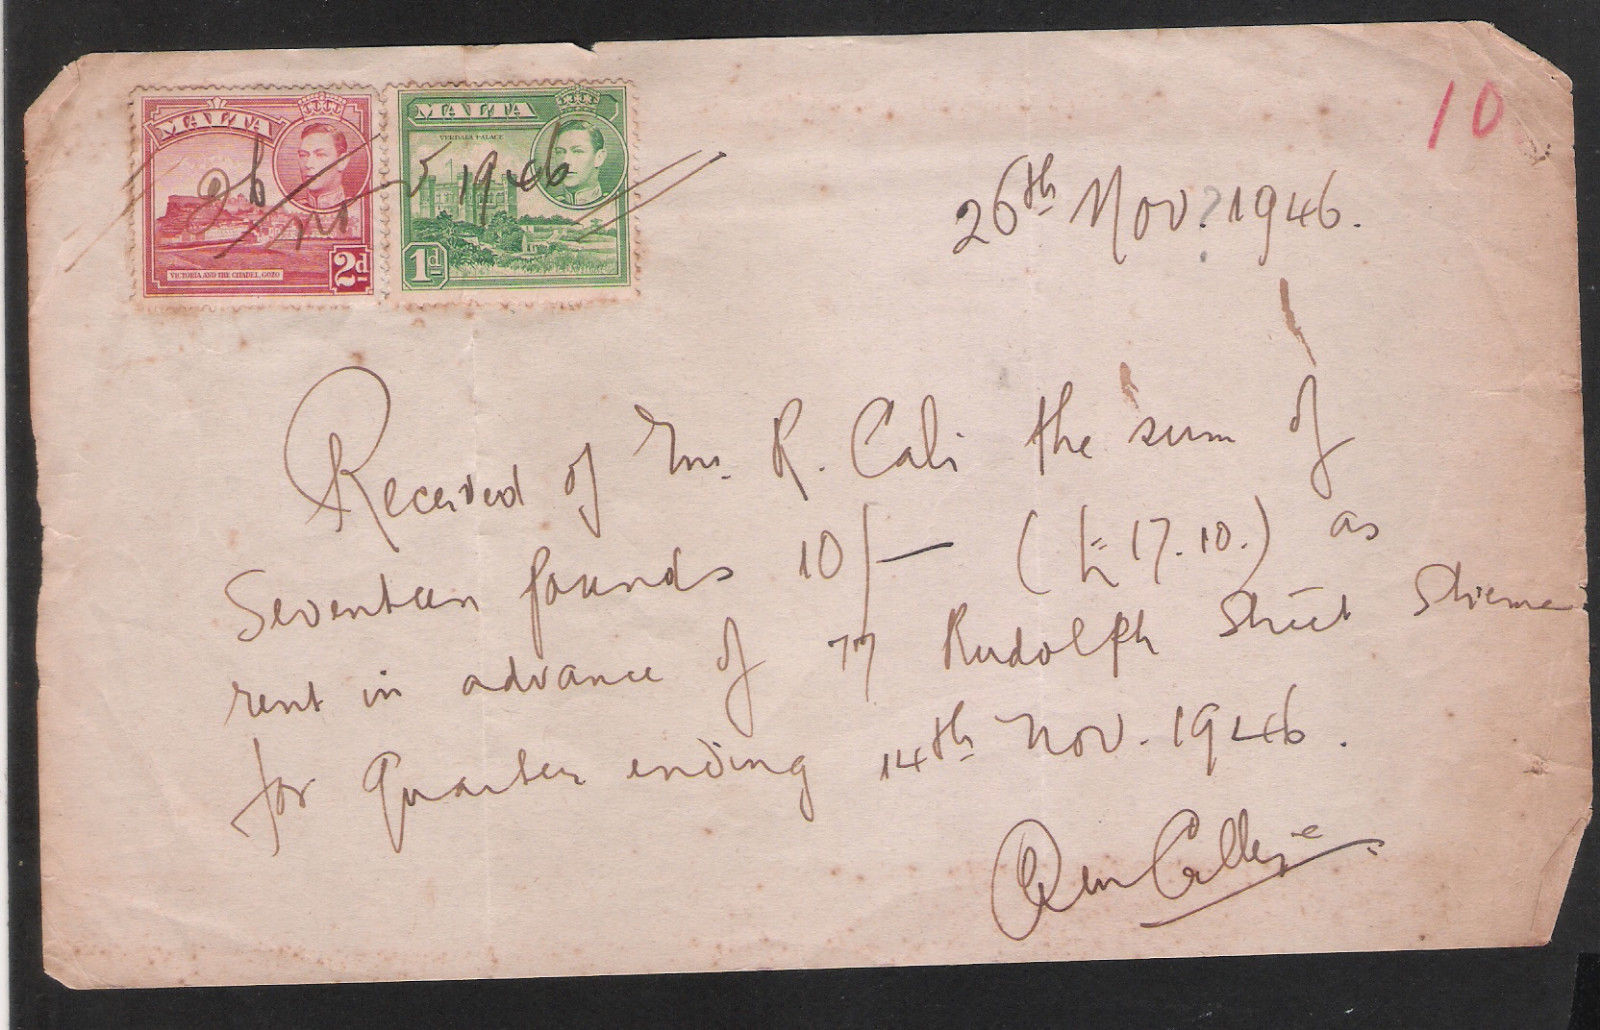 MALTA
VICTORIA AND THE CITADEL, GOZO
2d
MALTA
VERDALA PALACE
1d
26 1946
10
26th Nov. 1946.
Received of Mr. R. Cali the sum of
Seventeen pounds 10/- (£=17.10.) as
rent in advance of 77 Rudolph Street Sliema
for Quarter ending 14th Nov. 1946.